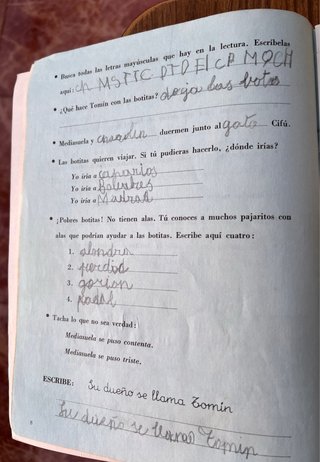 • Busca todas las letras mayúsculas que hay en la lectura. Escríbelas
aquí: Ch M S T T C P T P E l C P M O Ch
• ¿Qué hace Tomín con las botitas? deja las botas
• Mediasuela y chaqolin duermen junto al gato Cifú.
• Las botitas quieren viajar. Si tú pudieras hacerlo, ¿dónde irías?
Yo iría a canarios
Yo iría a Baleares
Yo iría a Madrid
• ¡Pobres botitas! No tienen alas. Tú conoces a muchos pajaritos con
alas que podrían ayudar a las botitas. Escribe aquí cuatro:
1. alondra
2. perdid
3. gorion
4.
• Tacha lo que no sea verdad:
Mediasuela se puso contenta.
Mediasuela se puso triste.
ESCRIBE: Su dueño se llama Tomín
Su dueño se llama Tomín
8